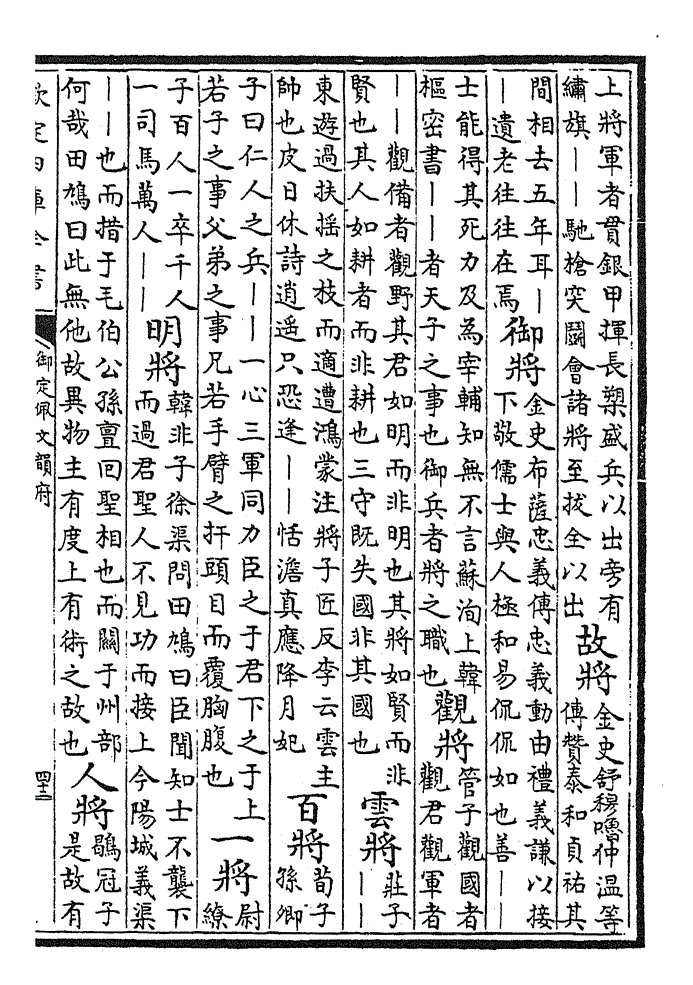 上將軍者貫銀甲揮長槊盛兵以出旁有
繡旗——馳槍突鬬會諸將至拔全以出
故將
金史舒穆嚕仲温等
傳贊泰和貞祐其
間相去五年耳—
—遺老往往在焉
御將
金史布薩忠義傳忠義動由禮義謙以接
下敬儒士與人極和易侃侃如也善——
士能得其死力及為宰輔知無不言蘇洵上韓
樞密書——者天子之事也御兵者將之職也
觀將
管子觀國者
觀君觀軍者
——觀備者觀野其君如明而非明也其將如賢而非
賢也其人如耕者而非耕也三守既失國非其國也
雲將
莊子
——
東遊過扶揺之枝而適遭鴻蒙注將子匠反李云雲主
帥也皮日休詩逍遥只恐逢——恬澹真應降月妃
百將
荀子
孫卿
子曰仁人之兵——一心三軍同力臣之于君下之于上
若子之事父弟之事兄若手臂之扞頭目而覆胸腹也
一將
尉
繚
子百人一卒千人
一司馬萬人——
明將
韓非子徐渠問田鳩曰臣聞知士不襲下
而過君聖人不見功而接上今陽城義渠
——也而措于毛伯公孫亶回聖相也而關于州部
何哉田鳩曰此無他故異物主有度上有術之故也
人將
鶡冠子
是故有
欽定四庫全書
御定佩文韻府